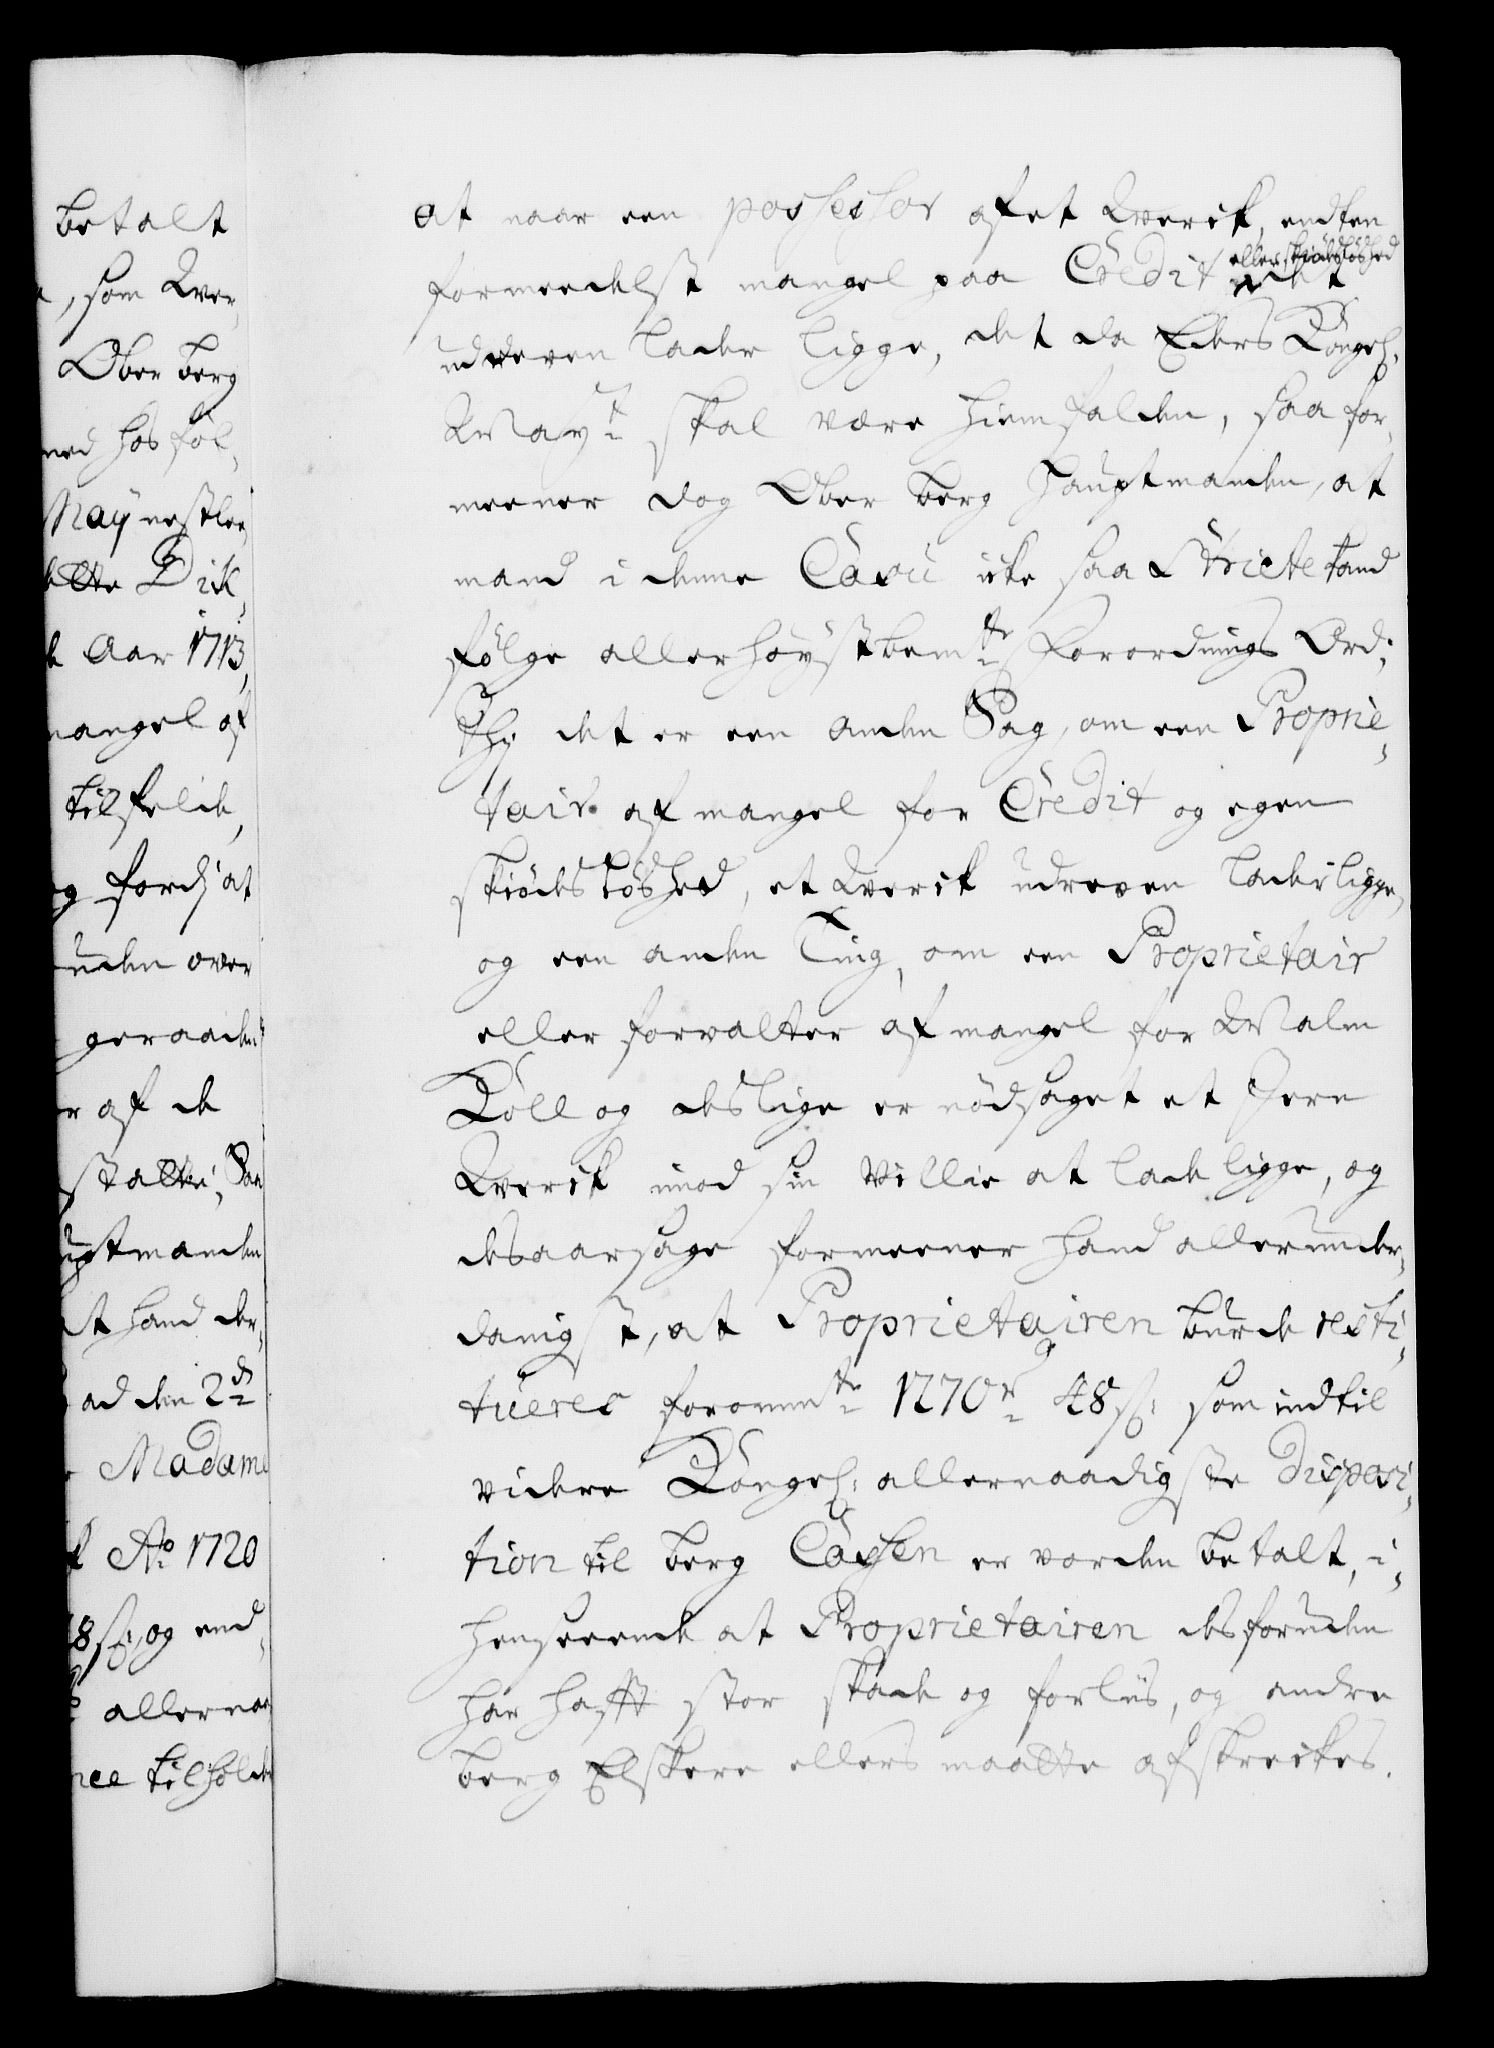 betalt
, som Ver¬
Ober berg
ned hos føl¬
May nestlee¬
ette Dirk¬
Aar 1713,
mangel af
tilfelde,
og fordj at
unden over
geraaden
r af de
stalte; Saa
uptmanden
at hand der¬
ad den 2de
Madame
Ao 1720
8 s; og end¬
allernaa
nee tilholde
at naar een possessor af et Verck, endten
formeedelst mangel paa Credit eller skiødesløshed det
uddreven lader ligge, det da Eders Kongel:
Mayt skal være hiemfalden, saa for¬
meener dog Ober berg Hauptmanden, at
mand i denne Casu icke saa Stricte kand
følge allerhøystbemte Forordnings Ord;
Thj det er een anden Sag, om een Proprie¬
tair af mangel for Credit og egen
skiødesløshed, et Verck udreven lader ligge,
og een anden Ting, om een Proprietair
eller forvalter af mangel for Malm
Koll og deslige er nødsaget et Jern
Verck imod sin Villie at lade ligge, og
desaarsage formeener hand allerunder¬
danigst, at Proprietairen burde resti¬
tueres forommte 1270 rd 48 s; som indtil
videre Kongel: allernaadigste Disposi¬
tion til berg Cassen er vorden betalt, i¬
henseende at Proprietairen desforuden
har hafft stor skade og forliis, og andre
berg Elskere ellers maatte afskreckes.